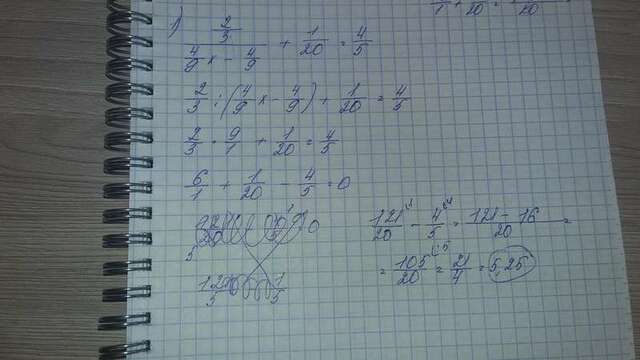 1/1 + /20 /20
1) (2/3)/(4/9 x - 4/9) + 1/20 = 4/5
2/3 : (4/9 x - 4/9) + 1/20 = 4/5
2/3 · 9/1 + 1/20 = 4/5
6/1 + 1/20 - 4/5 = 0
121/20 - 4/5 = 121 - 16/20 =
= 105/20 = 21/4 = 5,25